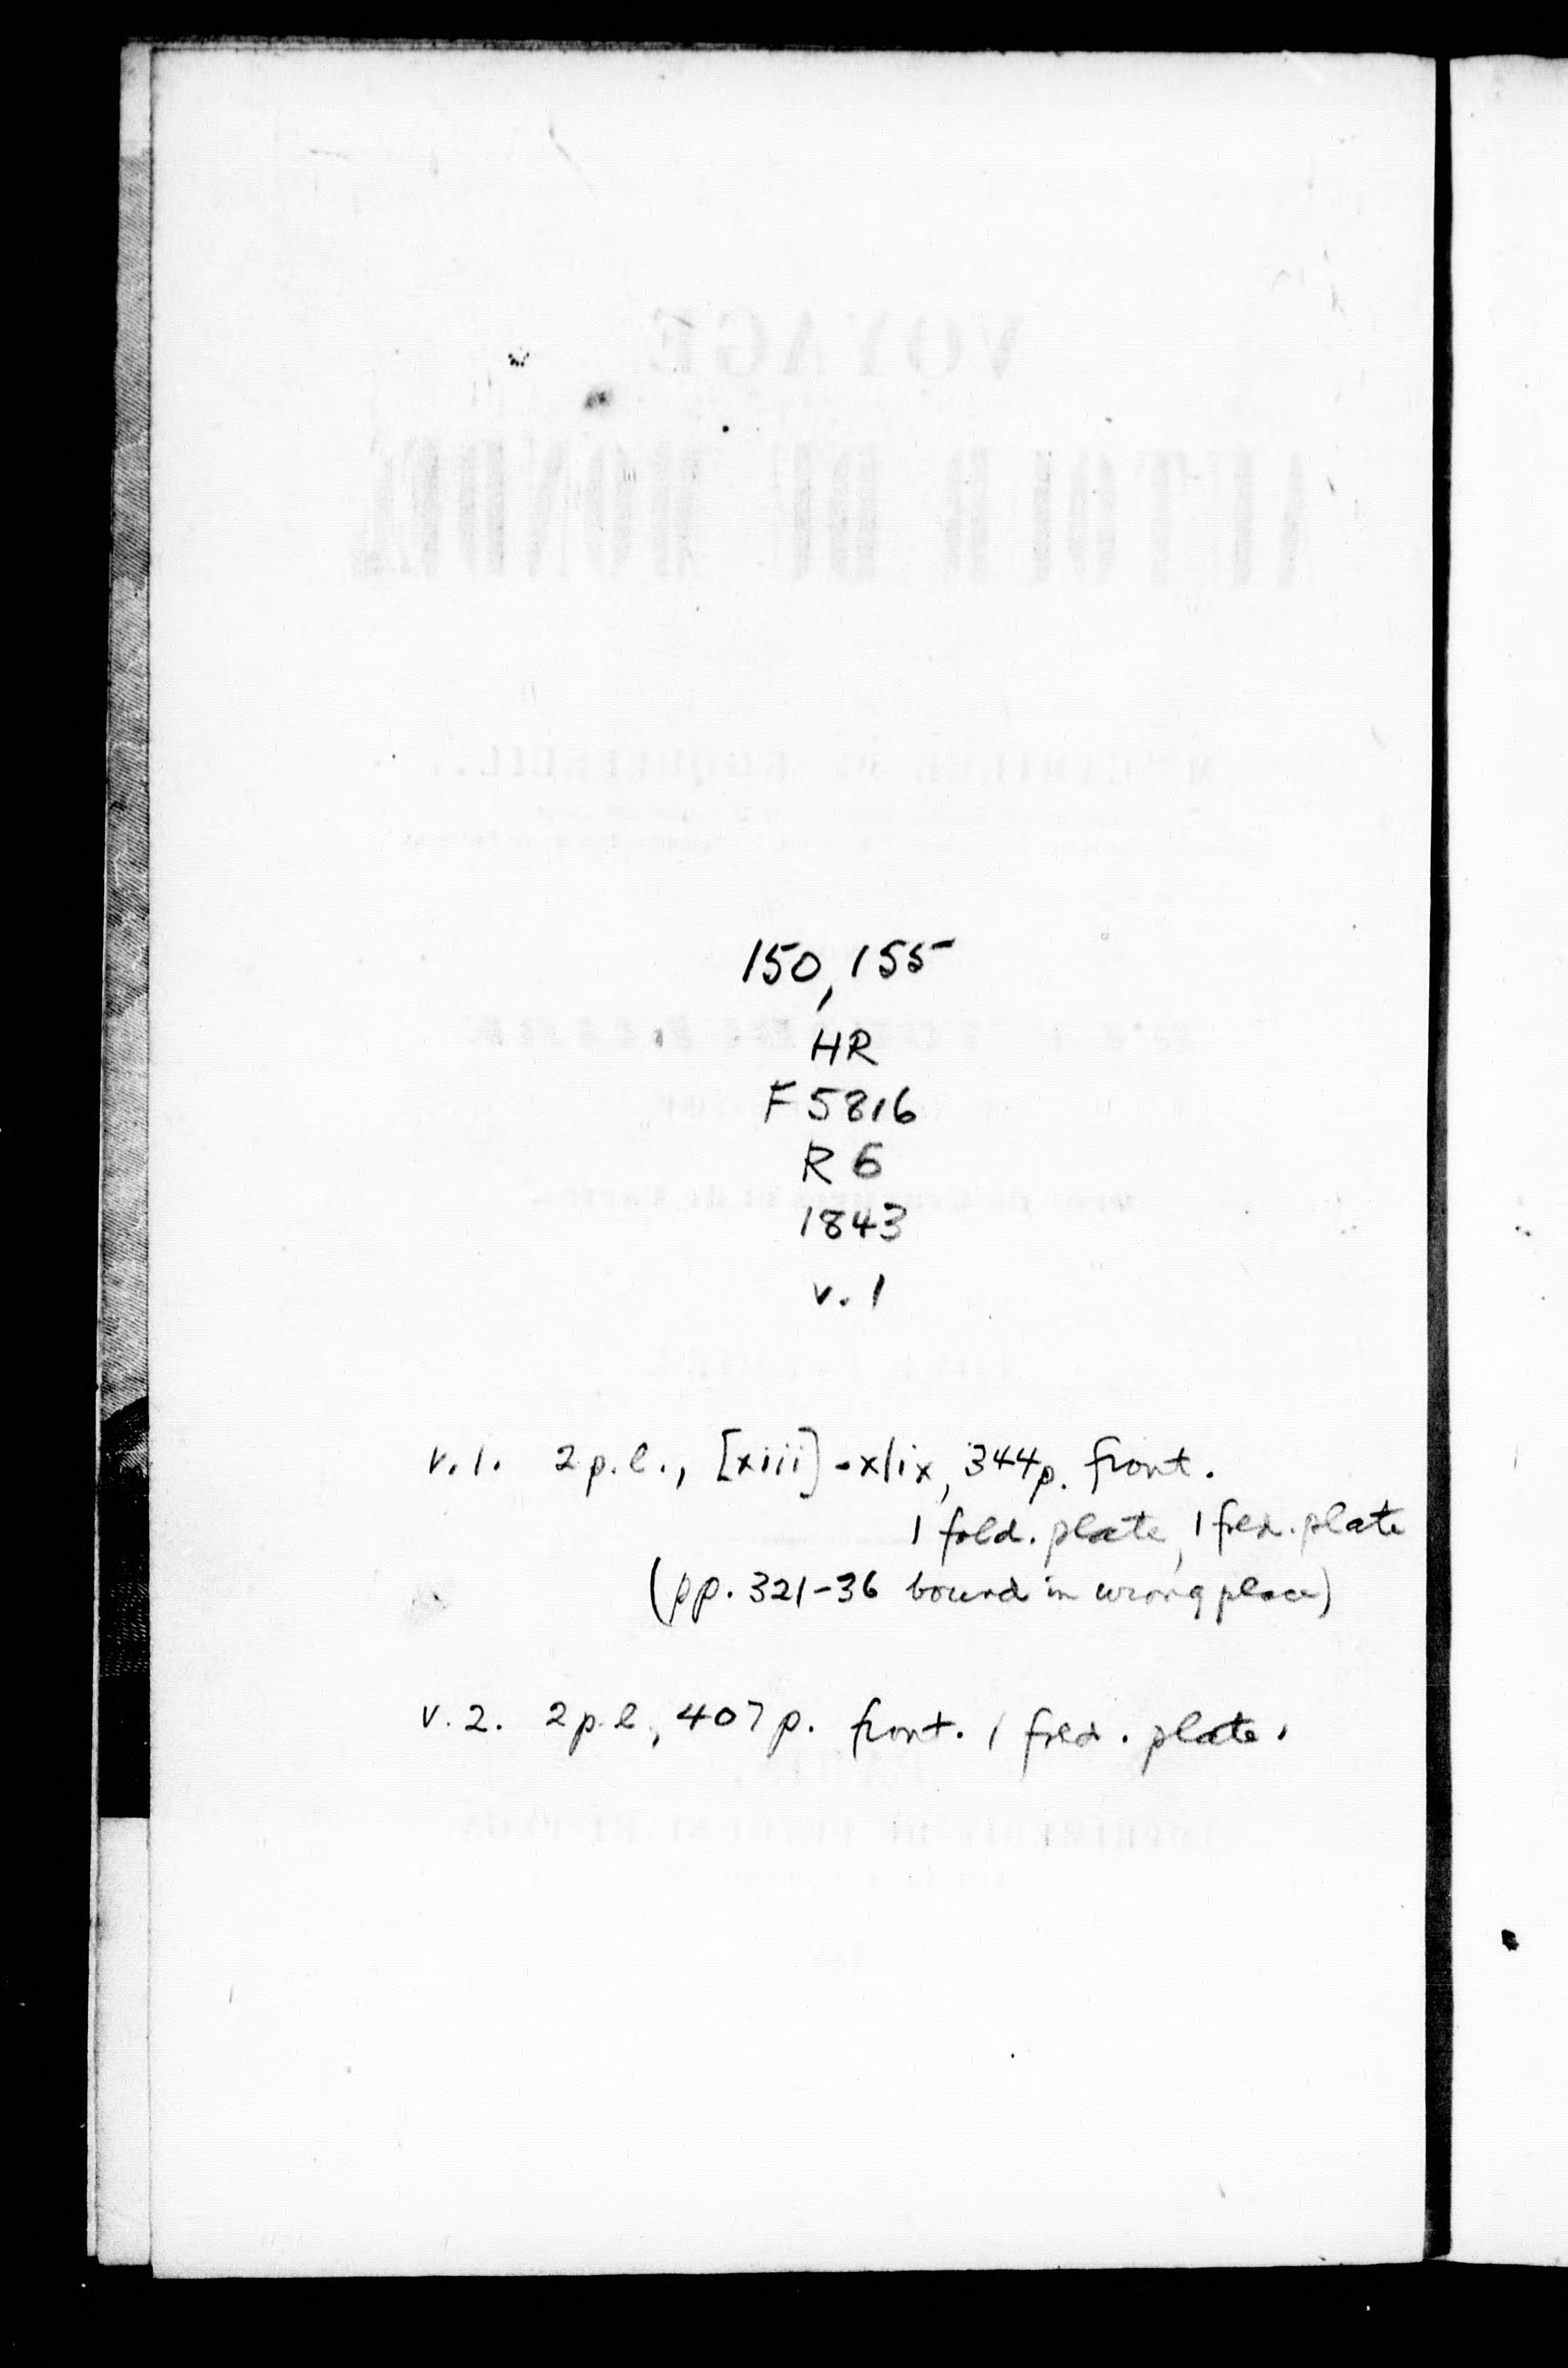 150,155
HR
F5816
R6
1843
v.1
v.1. 2 p.l., [xiii]-xlix, 344p. front.
1 fold. plate, 1 fold. plate
(pp. 321-36 bound in wrong place)
v.2. 2 p.l., 407 p. front. 1 fold. plate.